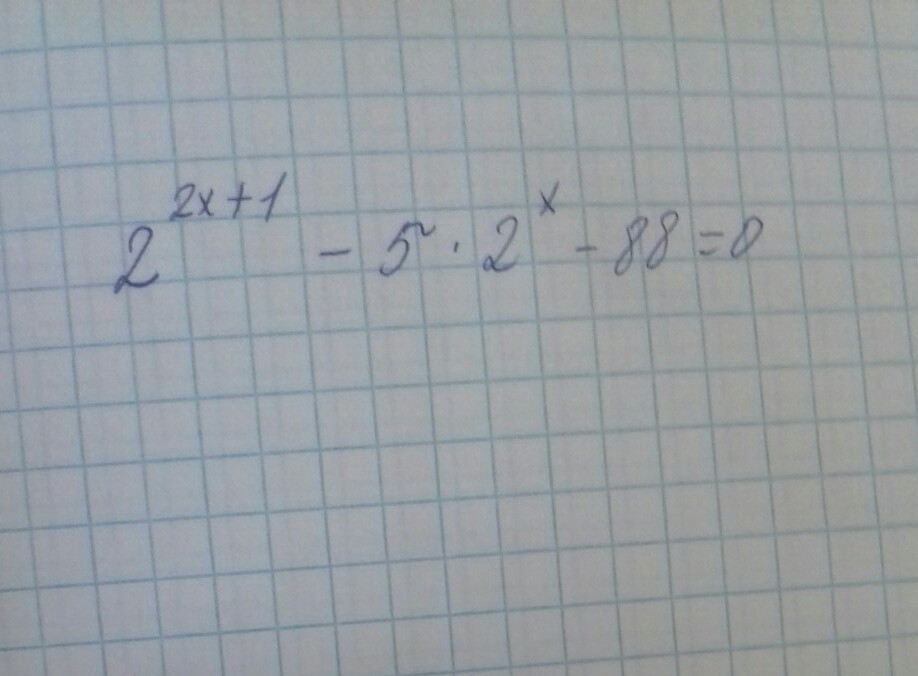 2^{2x+1} - 5 · 2^x - 88 = 0